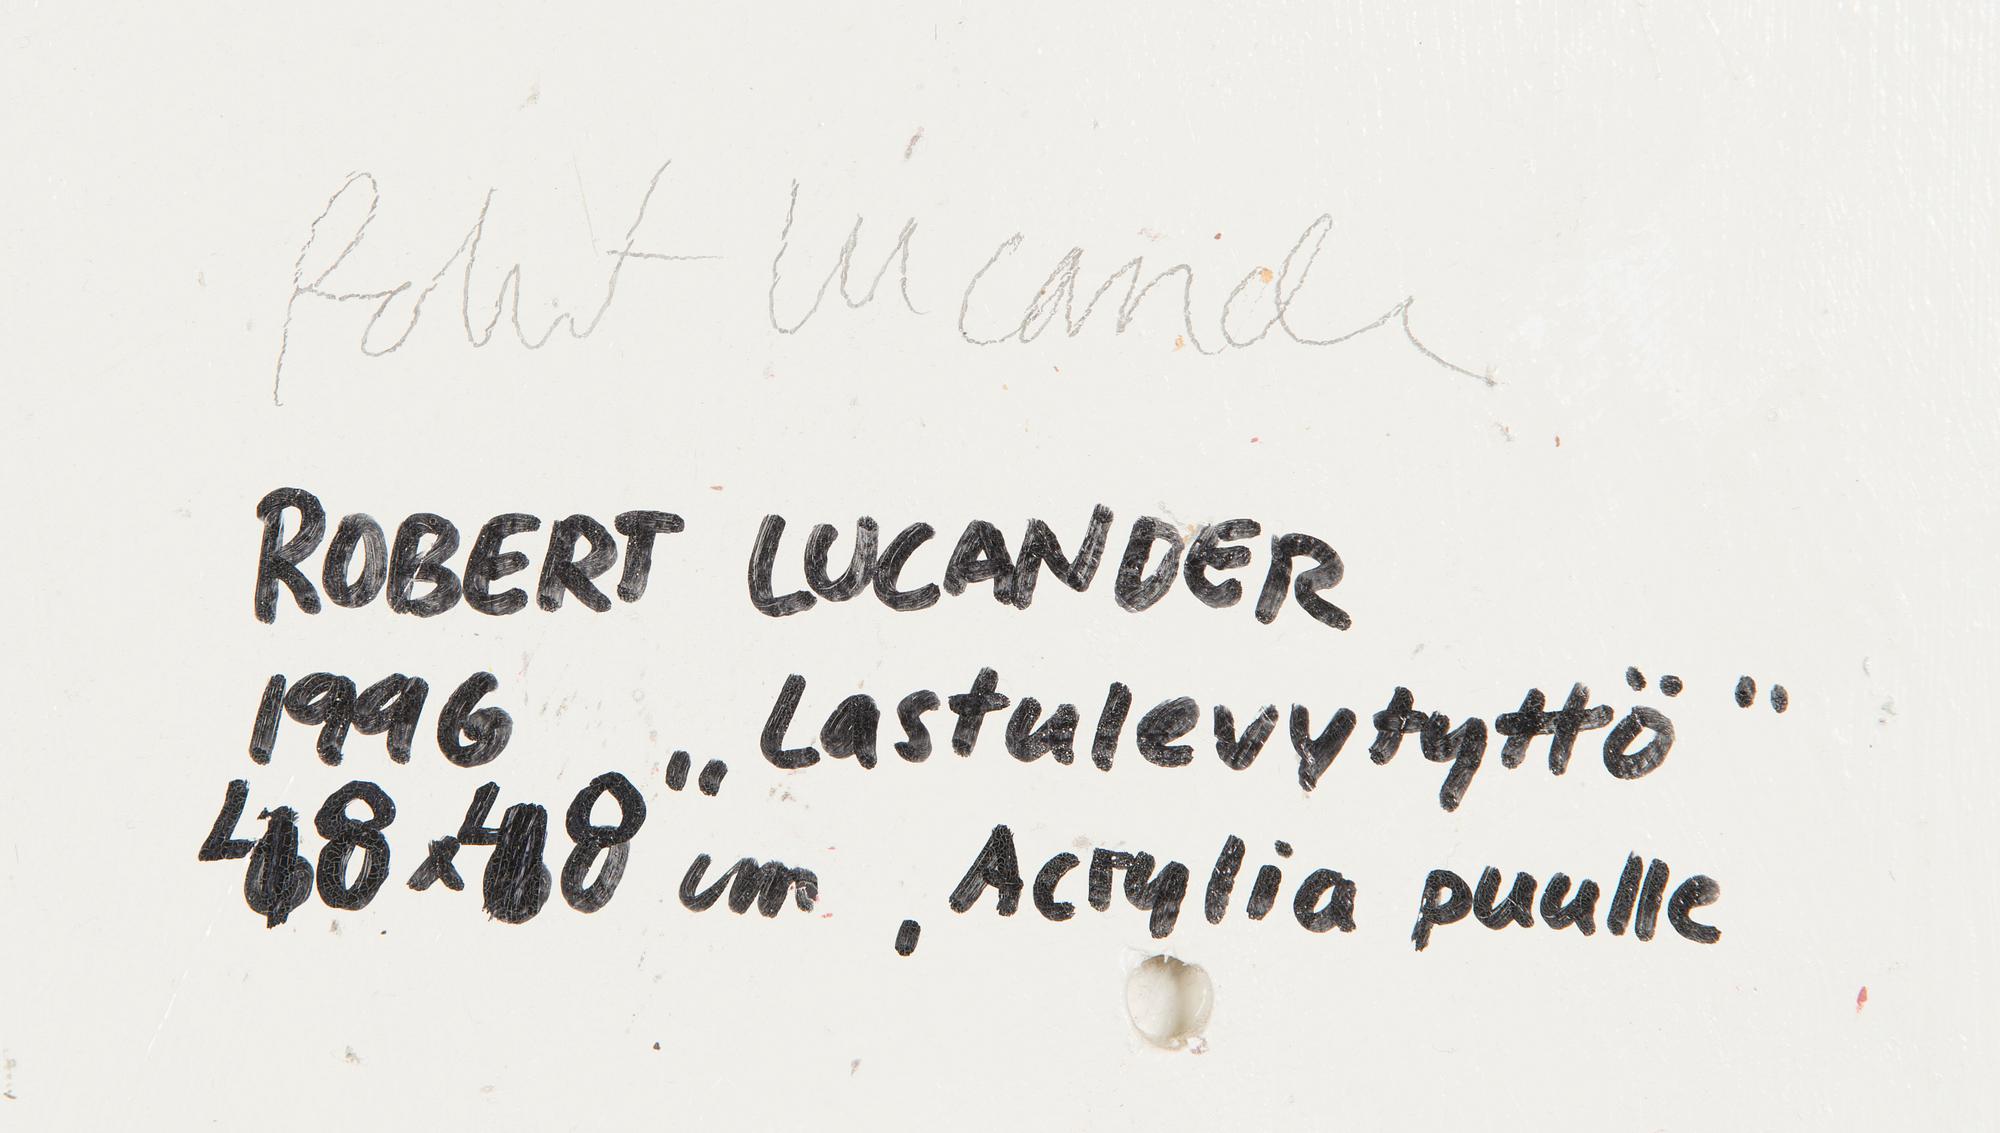 Robert Lucander
ROBERT LUCANDER
1996 „Lastulevytyttö"
48x48 cm, Acrylia puulle